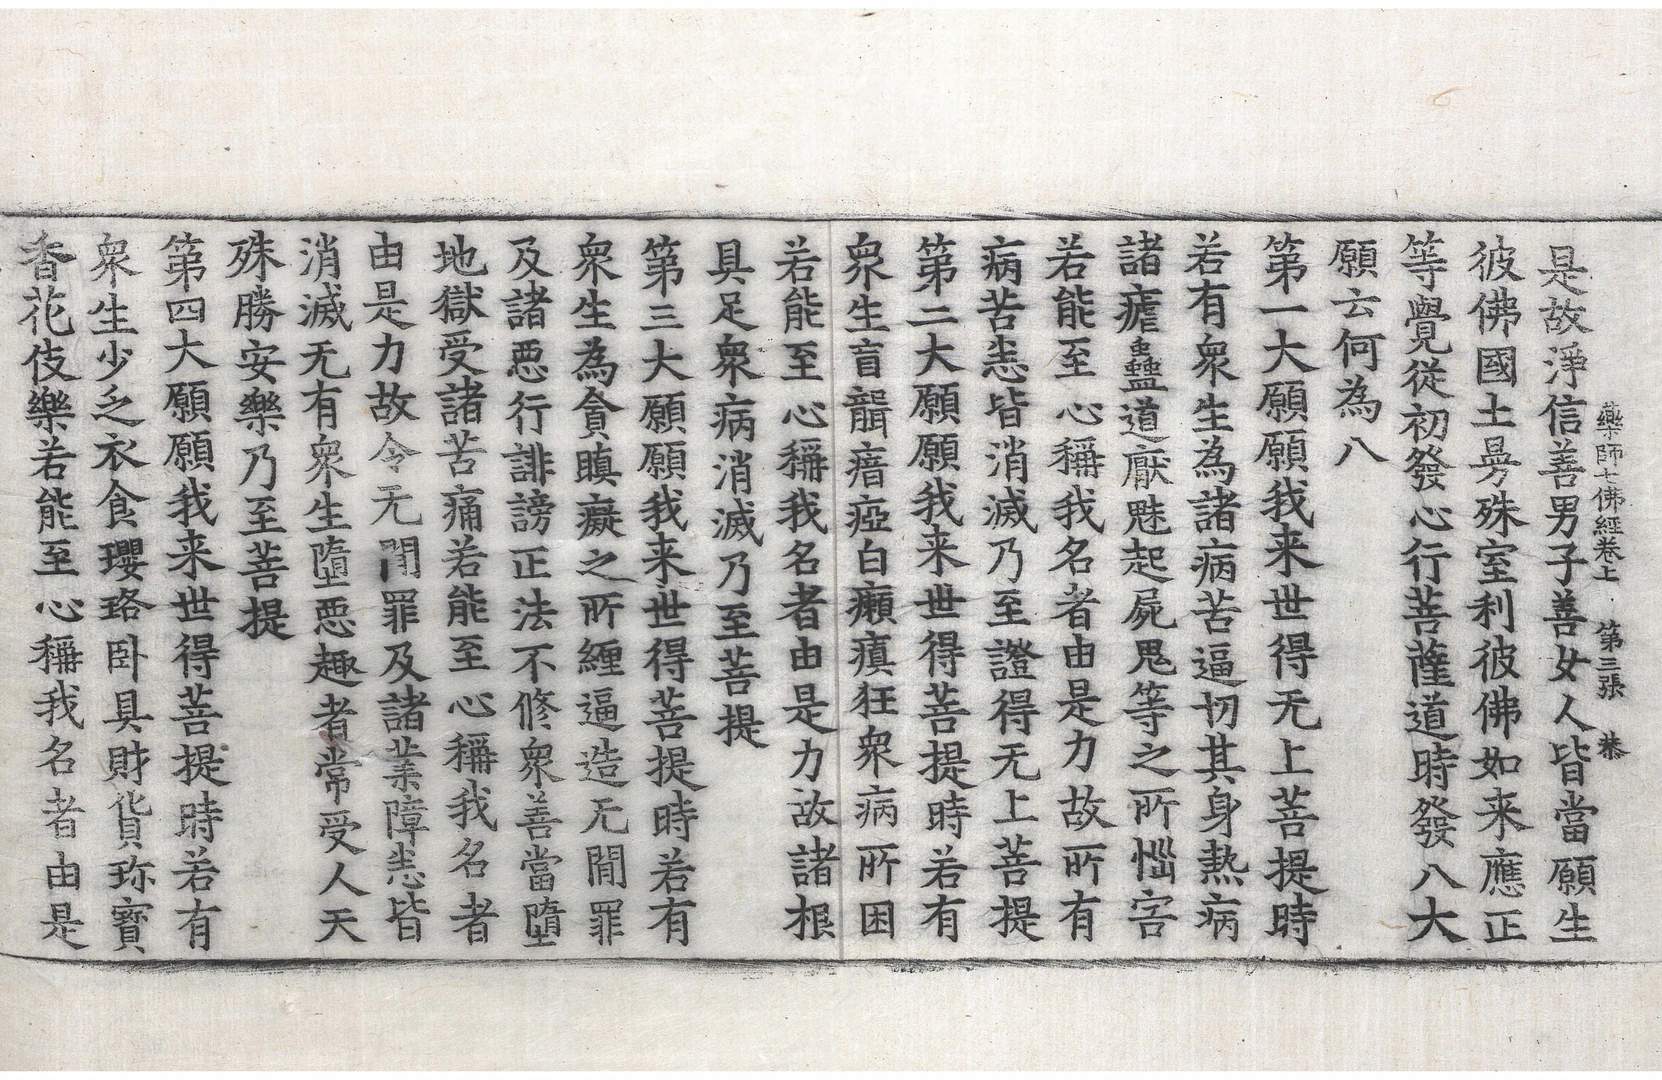 藥師七佛經卷上 第三張 恭
是故淨信善男子善女人皆當願生
彼佛國土曼殊室利彼佛如来應正
等覺従初發心行菩薩道時發八大
願云何為八
第一大願願我来世得无上菩提時
若有衆生為諸病苦逼切其身熱病
諸瘧蠱道厭魅起屍鬼等之所惱害
若能至心稱我名者由是力故所有
病苦悉皆消滅乃至證得无上菩提
第二大願願我来世得菩提時若有
衆生盲聾瘖瘂白癩瘨狂衆病所困
若能至心稱我名者由是力故諸根
具足衆病消滅乃至菩提
第三大願願我来世得菩提時若有
衆生為貪瞋癡之所纏逼造无間罪
及諸惡行誹謗正法不修衆善當墮
地獄受諸苦痛若能至心稱我名者
由是力故令无間罪及諸業障悉皆
消滅无有衆生墮惡趣者常受人天
殊勝安樂乃至菩提
第四大願願我来世得菩提時若有
衆生少乏衣食瓔珞卧具財貨珎寳
香花伎樂若能至心稱我名者由是